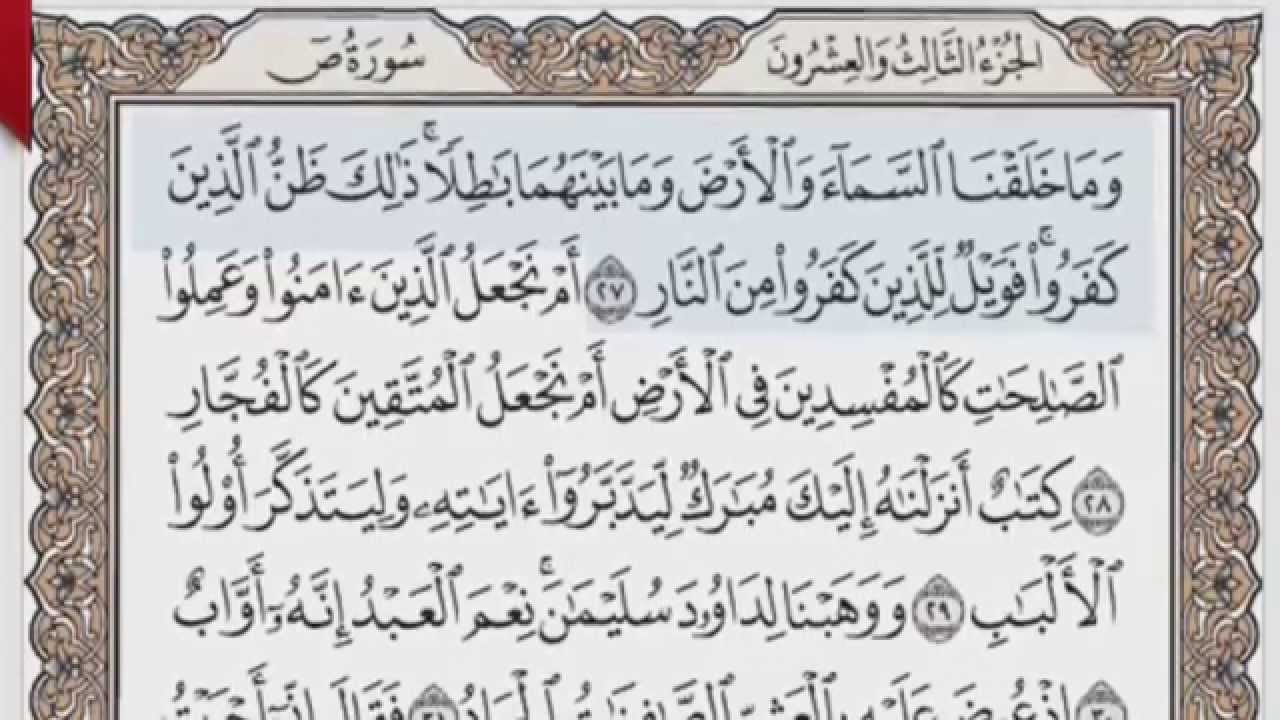 الجُزْءُ الثَّالِثُ وَالعِشْرُونَ
سُورَةُ صٓ
وَمَا خَلَقْنَا ٱلسَّمَآءَ وَٱلْأَرْضَ وَمَا بَيْنَهُمَا بَٰطِلًا ۚ ذَٰلِكَ ظَنُّ ٱلَّذِينَ
كَفَرُوا۟ ۚ فَوَيْلٌ لِّلَّذِينَ كَفَرُوا۟ مِنَ ٱلنَّارِ ٢٧ أَمْ نَجْعَلُ ٱلَّذِينَ ءَامَنُوا۟ وَعَمِلُوا۟
ٱلصَّٰلِحَٰتِ كَٱلْمُفْسِدِينَ فِى ٱلْأَرْضِ أَمْ نَجْعَلُ ٱلْمُتَّقِينَ كَٱلْفُجَّارِ
٢٨ كِتَٰبٌ أَنزَلْنَٰهُ إِلَيْكَ مُبَٰرَكٌ لِّيَدَّبَّرُوٓا۟ ءَايَٰتِهِۦ وَلِيَتَذَكَّرَ أُو۟لُوا۟
ٱلْأَلْبَٰبِ ٢٩ وَوَهَبْنَا لِدَاوُۥدَ سُلَيْمَٰنَ ۚ نِعْمَ ٱلْعَبْدُ إِنَّهُۥٓ أَوَّابٌ
٣٠ إِذْ عُرِضَ عَلَيْهِ بِٱلْعَشِىِّ ٱلصَّٰفِنَٰتُ ٱلْجِيَادُ ٣١ فَقَالَ إِنِّىٓ أَحْبَبْتُ